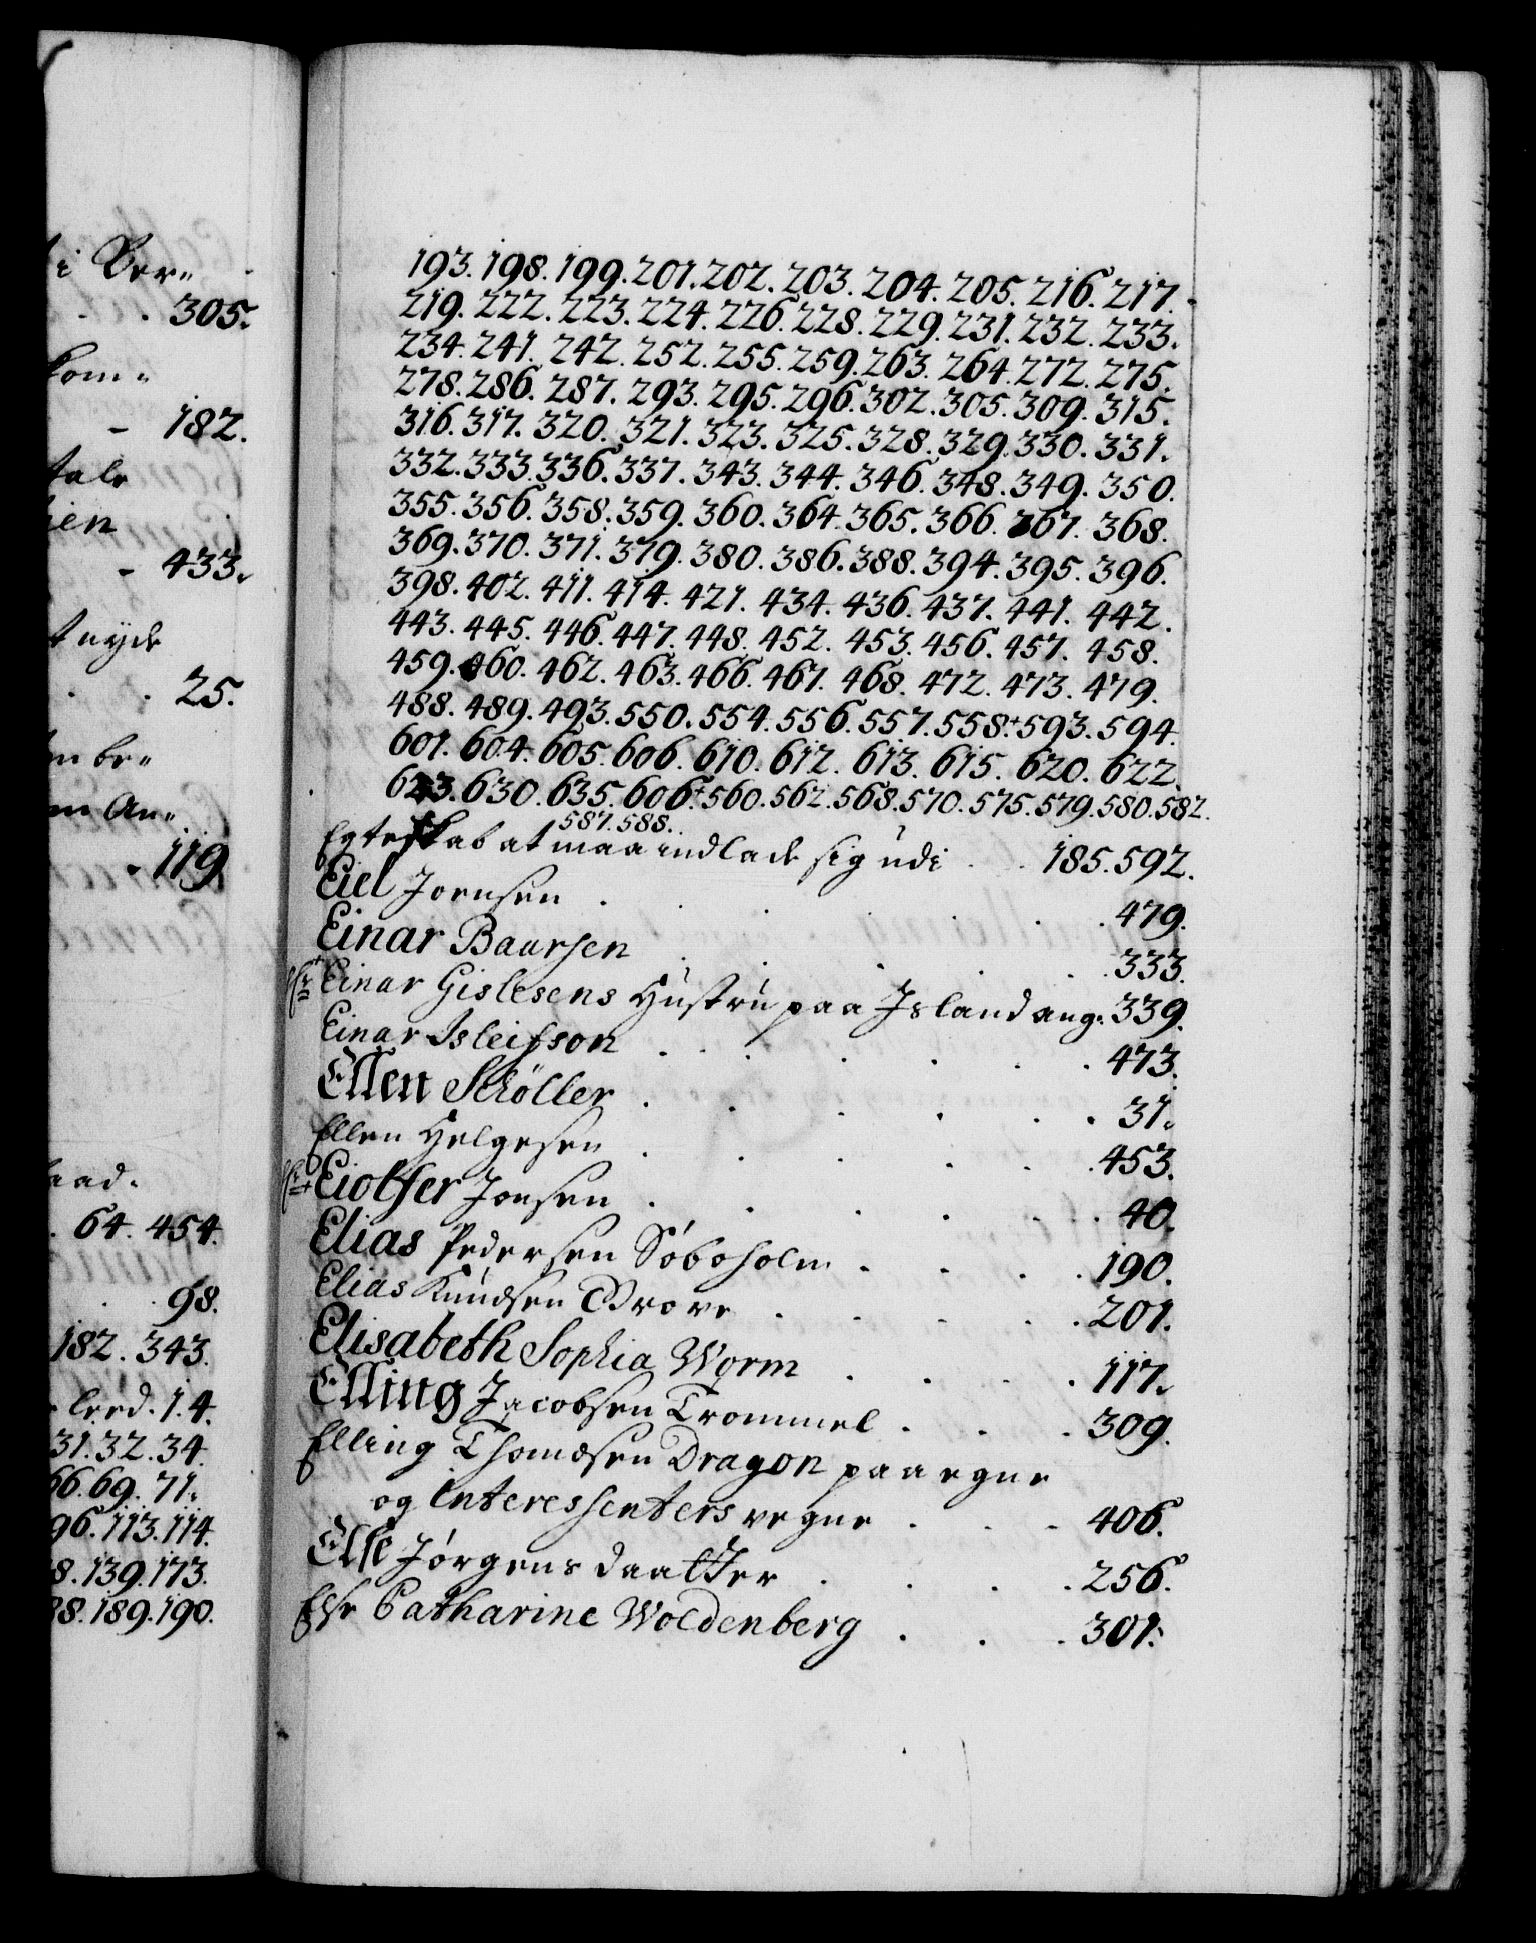 i Ber⸗
305.
kom⸗
182.
tale
sen
433.
nyde
25.
n be⸗
m An⸗
119
aad.
64. 454.
98.
182. 343.
leed. 1. 4.
31. 32. 34.
66. 69. 71.
96. 113. 114.
8. 139. 173.
88. 189. 190.
193. 198. 199. 201. 202. 203. 204. 205. 216. 217.
219. 222. 223. 224. 226. 228. 229. 231. 232. 233.
234. 241. 242. 252. 255. 259. 263. 264. 272. 275.
278. 286. 287. 293. 295. 296. 302. 305. 309. 315.
316. 317. 320. 321. 323. 325. 328. 329. 330. 331.
332. 333. 336. 337. 343. 344. 346. 348. 349. 350.
355. 356. 358. 359. 360. 364. 365. 366. 367. 368.
369. 370. 371. 379. 380. 386. 388. 394. 395. 396.
398. 402. 411. 414. 421. 434. 436. 437. 441. 442.
443. 445. 446. 447. 448. 452. 453. 456. 457. 458.
459. 460. 462. 463. 466. 467. 468. 472. 473. 479.
488. 489. 493. 550. 554. 556. 557. 558.+ 593. 594.
601. 604. 605. 606. 610. 612. 613. 615. 620. 622.
623. 630. 635. 606.+ 560. 562. 568. 570. 575. 579. 580. 582.
587. 588.
Egteskab at maa indlade sig udi . . 185. 592.
Eiel Joensen . . . . . . 479.
Einar Baarsen . . . . . 333.
Einar Gislesens Hustru paa Island ang: 339.
Einar Isleifson . . . . . . 473.
Ellen Schøller . . . . . . 31.
Ellen Helgesen . . . . . . 453.
Eiolfer Jonsen . . . . . . 40.
Elias Pedersen Søboholm . . . . 190.
Elias Knudsen Brove . . . . . 201.
Elisabeth Sophia Worm . . . . 117.
Elling Jacobsen Trommel . . . 309.
Elling Thomæsen Dragon paa egne
og Interessenters vegne . . . 406.
Else Jørgens daatter . . . . 256.
Else Catharine Woldenberg . . . 301.